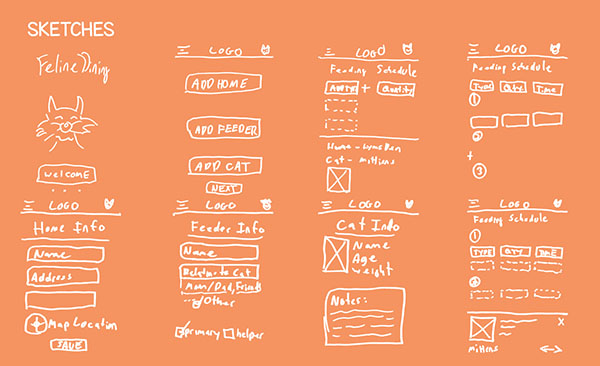 SKETCHES
Feline Dining
welcome
LOGO
ADD HOME
ADD FEEDER
ADD CAT
NEXT
LOGO
Feeding Schedule
+ Quantity
Home -
Cat - mittens
LOGO
Feeding Schedule
Type Qty Time
1
2
+
3
LOGO
Home Info
Name
Address
Map Location
SAVE
LOGO
Feeder Info
Name
Relation to Cat
Mom/Dad, Friends
Other
primary helper
LOGO
Cat Info
Name
Age
weight
Notes:
LOGO
Feeding Schedule
1
TYPE QTY TIME
2
X
mittens